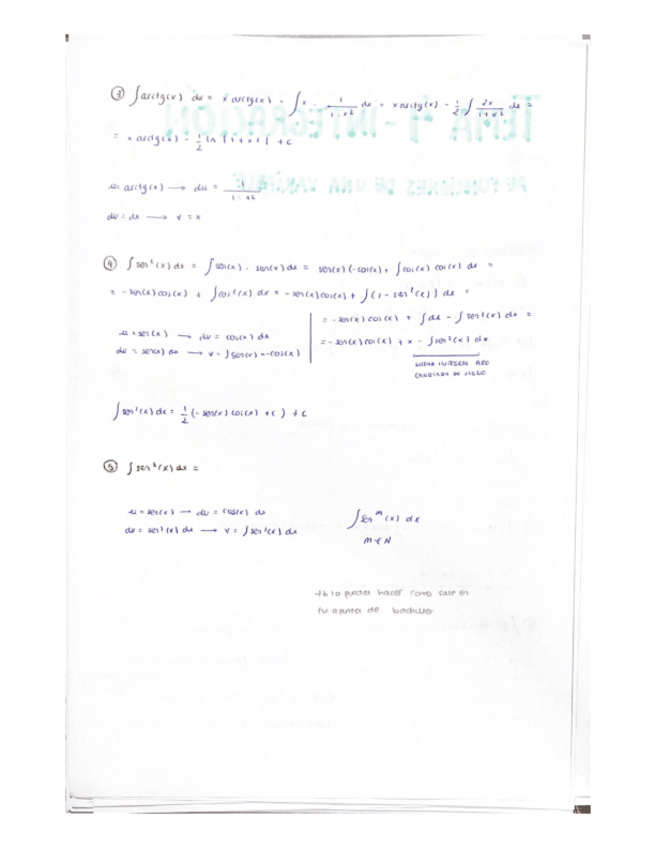 ③ ∫arctg(x) dx = x arctg(x) - ∫x · 1/(1+x²) dx = x arctg(x) - 1/2 ∫ 2x/(1+x²) dx =
= x arctg(x) - 1/2 ln |1+x²| + c
u = arctg(x) → du = 1/(1+x²)
dv = dx → v = x
④ ∫sen²(x) dx = ∫sen(x) · sen(x) dx = sen(x)(-cos(x) + ∫cos(x) cos(x) dx =
= -sen(x) cos(x) + ∫cos²(x) dx = -sen(x) cos(x) + ∫(1 - sen²(x)) dx =
= -sen(x) cos(x) + ∫dx - ∫sen²(x) dx =
= -sen(x) cos(x) + x - ∫sen²(x) dx =
u = sen(x) → du = cos(x) dx
dv = sen(x) dx → v = ∫sen(x) = -cos(x)
MISMA INTEGRAL PERO
CAMBIADA DE SIGNO
∫sen²(x) dx = 1/2 (-sen(x) cos(x) + c) + c
⑤ ∫sen³(x) dx =
u = sen(x) → du = cos(x) dx
dv = sen²(x) dx → v = ∫sen²(x) dx
∫sen^m (x) dx
m ∈ N
tb lo puedes hacer como sale en
tu apuntes de bachiller